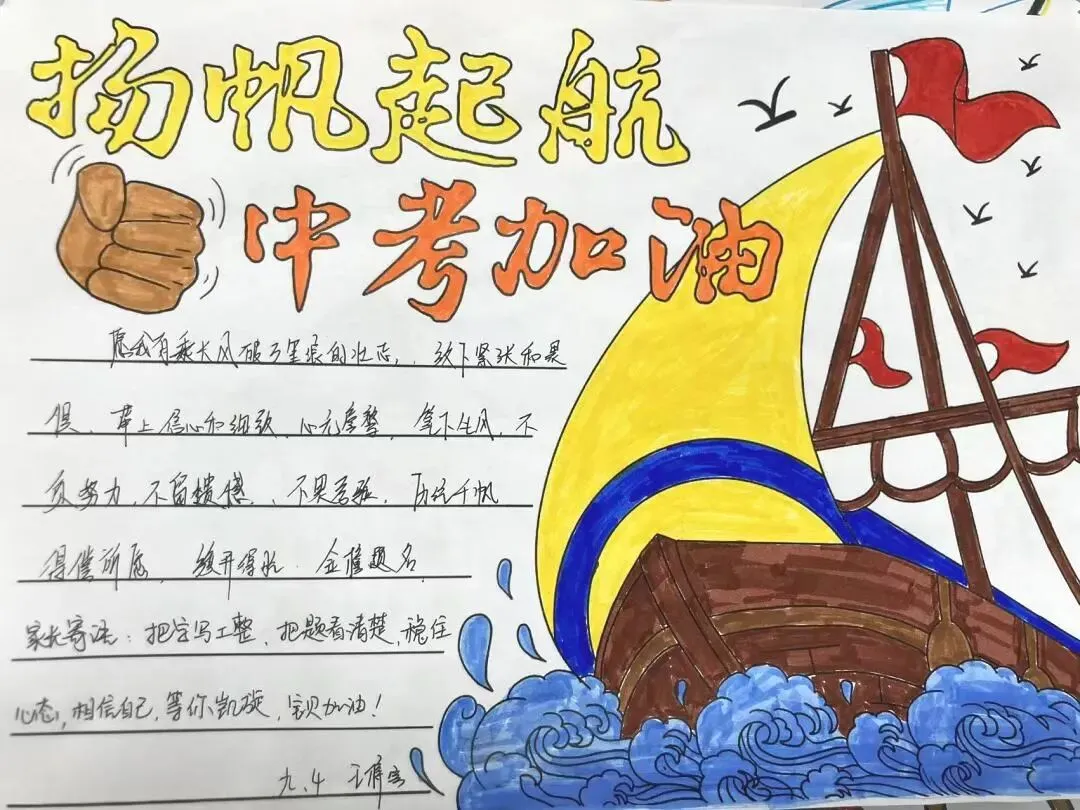 扬帆起航
中考加油
愿我有乘大风破万里浪的壮志,放下紧张和畏
惧、带上信心和细致、心无旁骛,笔下生风,不
负努力,不留遗憾、不畏考验,历经千帆
得偿所愿,旗开得胜.金榜题名.
家长寄语:把字写工整,把题看清楚,稳住
心态,相信自己,等你凯旋,宝贝加油!
九.4 王